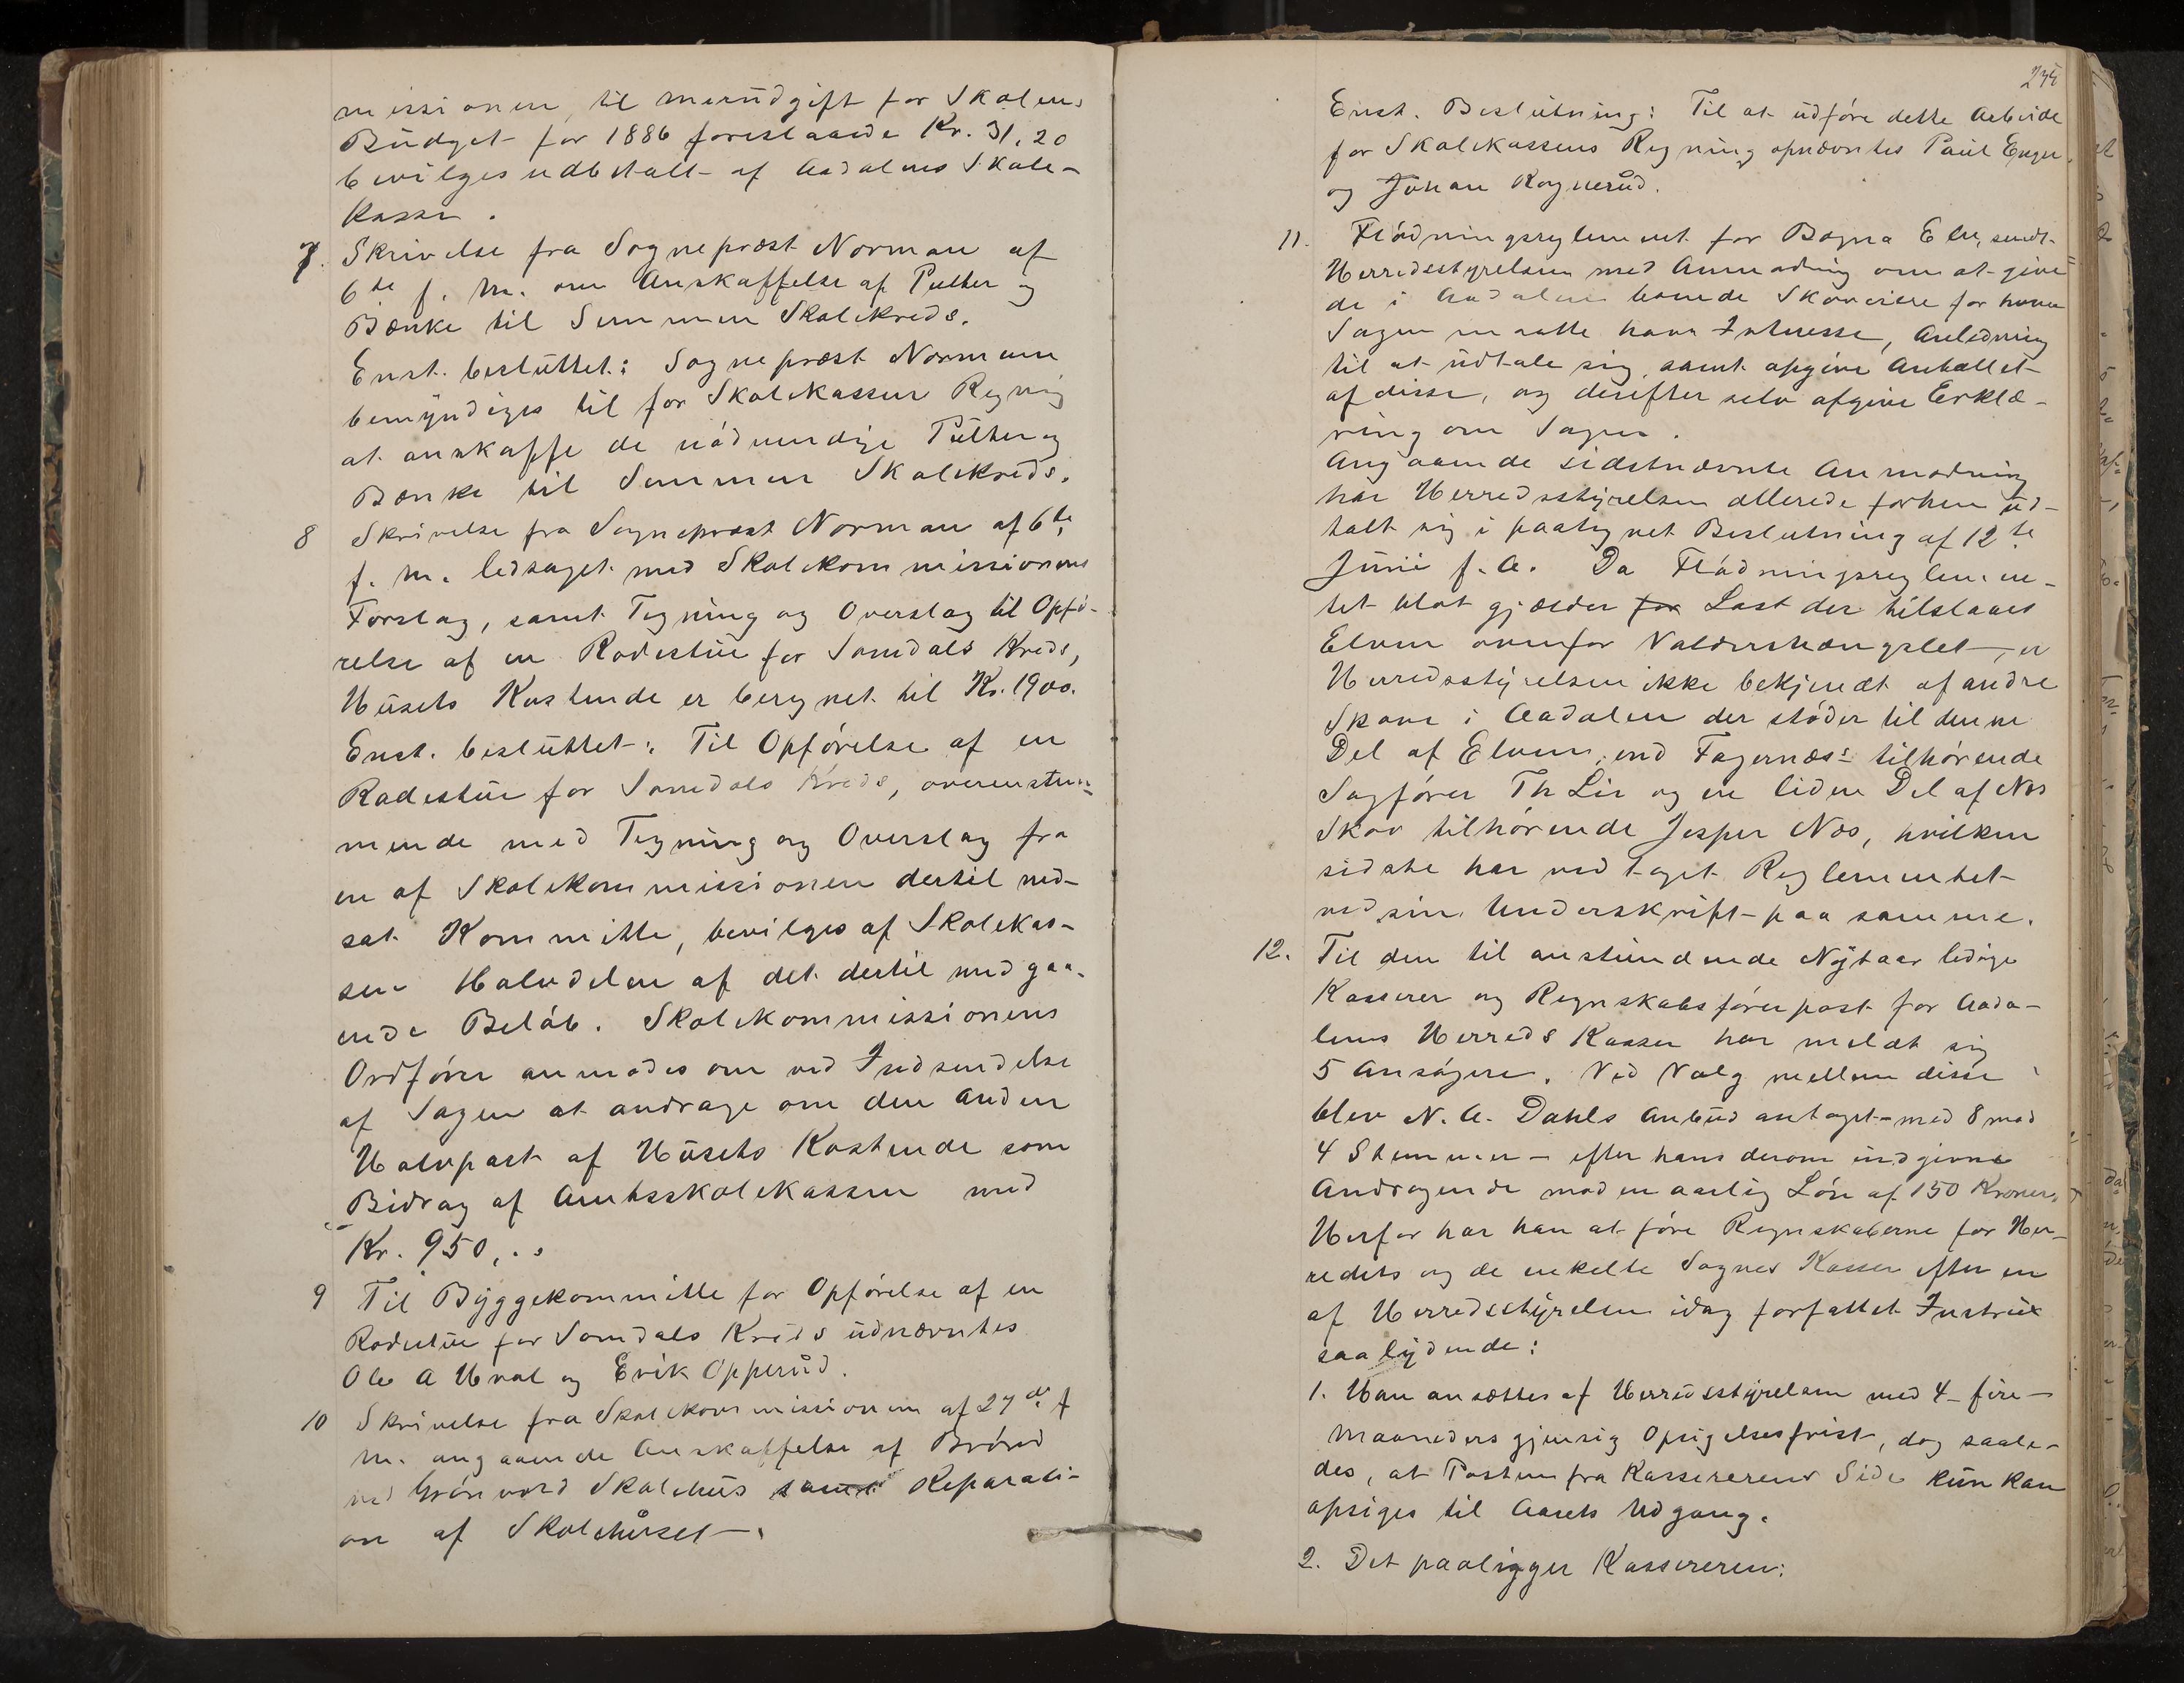 missionen, til merudgift for Skolens
Budget for 1886 foreslaaede Kr. 31,20
bevilges udbetalt af Aadalens Skole-
kasse.
7. Skrivelse fra Sogneprest Norman af
6te f. M. om Anskaffelse af Pulter og
Bænke til Semmen Skolekreds.
Enst. besluttet: Sogneprest Normann
bemyndiges til for Skolekassen Regnig
at anskaffe de nödvendige Pulter og
Bænke til Semmen Skolekreds.
8 Skrivelse fra Sogneprest Norman af 6te
f. M. ledsaget med Skolekommissionens
Forslag, samt Tegning og Overslag til Opfö-
relse af en Rodestue for Somdals Kreds,
Husets Kostende er beregnet til Kr. 1900.
Enst. besluttet: Til Opförelse af en
Rodestue for Somdals Kreds, overenstem=
mende med Tegning og Overslag fra
en af Skolekommissionen dertil ned-
sat Kommitte, bevilges af Skolekas-
sen Halvdelen af det dertil medgaa-
ende Belöb. Skolekommissionens
Ordförer anmodes om ved Indsendelse
af Sagen at andrage om den anden
Halvpart af Husets Kostende som
Bidrag af Amtsskolekassen med
Kr. 950,..
9 Til Byggekommitte for Opförelse af en
Rodestue for Somdals Kreds udnævntes
Ole A Hval og Erik Opperud.
10 Skrivelse fra Skolekommissionen af 27de f
M. angaaende Anskaffelse af Brönd
ved Grönvold Skolehus samt Reparati-
on af Skolehuset.
245
Enst. Beslutning: Til at udföre dette Arbeide
for Skolekassens Regning opnævntes Paul Enger
og Johan Rognerud.
11. Flödningsreglement for Bægna Elv, sendt
Herredsstyrelsen med Anmodning om at give
de i Aadalen boende Skoveiere for hvem
Sagen maatte have Interesse, Anledning
til at udtale sig, samt opgive Antallet
af disse, og derefter selv afgive Erklæ-
ring om Sagen.
Angaaende sidstnævnte Anmodning
har Herredsstyrelsen allerede forhen ud-
talt sig i paategnet Beslutning af 12te
Juni f. A. Da Flödningsreglemen-
tet blot gjælder for Last der tilslaaes
Elven ovenfor Valdershængslet, er
Herredsstyrelsen ikke bekjendt af andre
Skove i Aadalen der stöder til denne
Del af Elven, end Fagernæs: tilhörende
Sagförer Th Lie og en liden Del af Næs
Skov tilhörende Jesper Næs, hvilken
sidste har vedtaget Reglementet
ved sin Underskrift paa samme.
12. Til den til anstundende Nytaar ledige
Kasserer og Regnskabsförerpost for Aada-
lens Herreds Kasser har meldt sig
5 Ansögere. Ved Valg mellem disse
blev N. A. Dahls Anbud antaget med 8 mod
4 Stemmer - efter hans derom indgivne
Andragende mod en aarlig Lön af 150 Kroner.
Herfor har han at före Regnskaberne for Her-
redets og de enkelte Sognes Kasser efter en
af Herredsstyrelsen idag forfattet Instrux
saalydende:
1. Han ansættes af Herredsstyrelsen med 4 - fire -
Maaneders gjensig Opsigelsesfrist, dog saale-
des, at Posten fra Kassererens Side kun kan
opsiges til Aarets Udgang.
2. Det paaligger Kassereren: